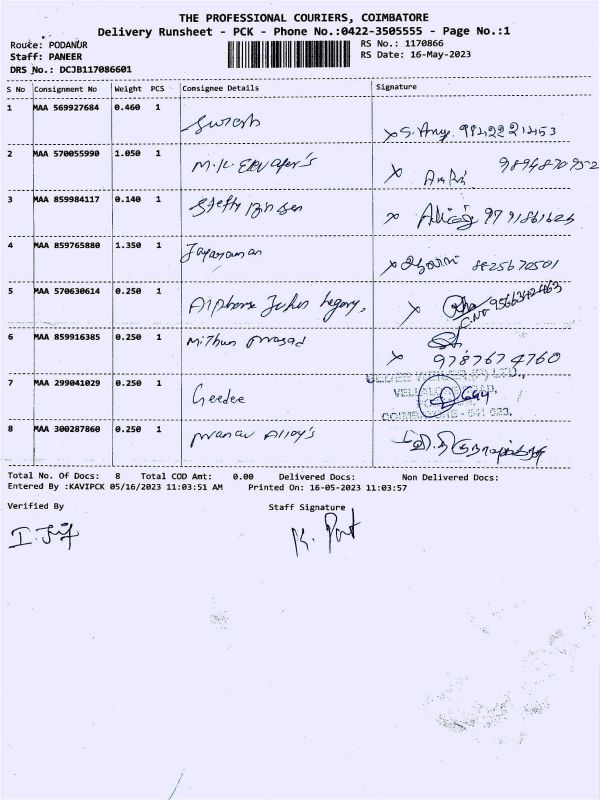 THE PROFESSIONAL COURIERS, COIMBATORE
Delivery Runsheet - PCK - Phone No.:0422-3505555 - Page No.:1
Route: PODANUR
RS No.: 1170866
Staff: PANEER
RS Date: 16-May-2023
DRS No.: DCJB117086601
S No Consignment No Weight PCS Consignee Details Signature
1 MAA 569927684 0.460 1 Suresh
2 MAA 570055990 1.050 1 M.K. 9894870952
3 MAA 859984117 0.140 1
4 MAA 859765880 1.350 1 Jayaraman 8825670501
5 MAA 570630614 0.250 1 Alphonse
6 MAA 859916385 0.250 1 Mithun Prasad
9787674760
7 MAA 299041029 0.250 1 Geedee
8 MAA 300287860 0.250 1 Pranav Alloy's
Total No. Of Docs: 8 Total COD Amt: 0.00 Delivered Docs: Non Delivered Docs:
Entered By :KAVIPCK 05/16/2023 11:03:51 AM Printed On: 16-05-2023 11:03:57
Verified By Staff Signature